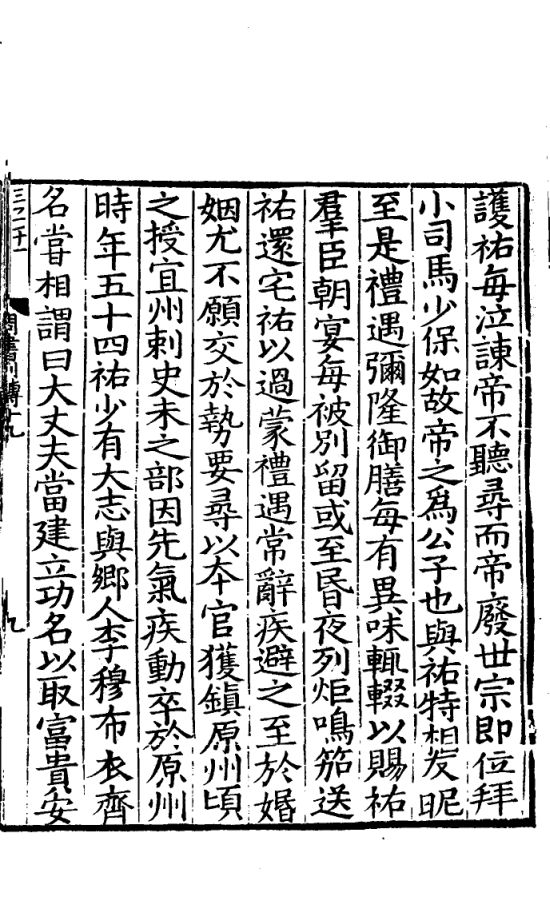 護祐每泣諫帝不聽尋而帝廢世宗即位拜
小司馬少保如故帝之爲公子也與祐特相友昵
至是禮遇彌隆御膳每有異味輒輟以賜祐
羣臣朝宴每被別留或至昏夜列炬鳴笳送
祐還宅祐以過蒙禮遇常辭疾避之至於婚
姻尤不願交於勢要尋以本官獲鎮原州頃
之授宜州刺史未之部因先氣疾動卒於原州
時年五十四祐少有大志與鄉人李穆布衣齊
名嘗相謂曰大丈夫當建立功名以取富貴安
周書列傳十九
九